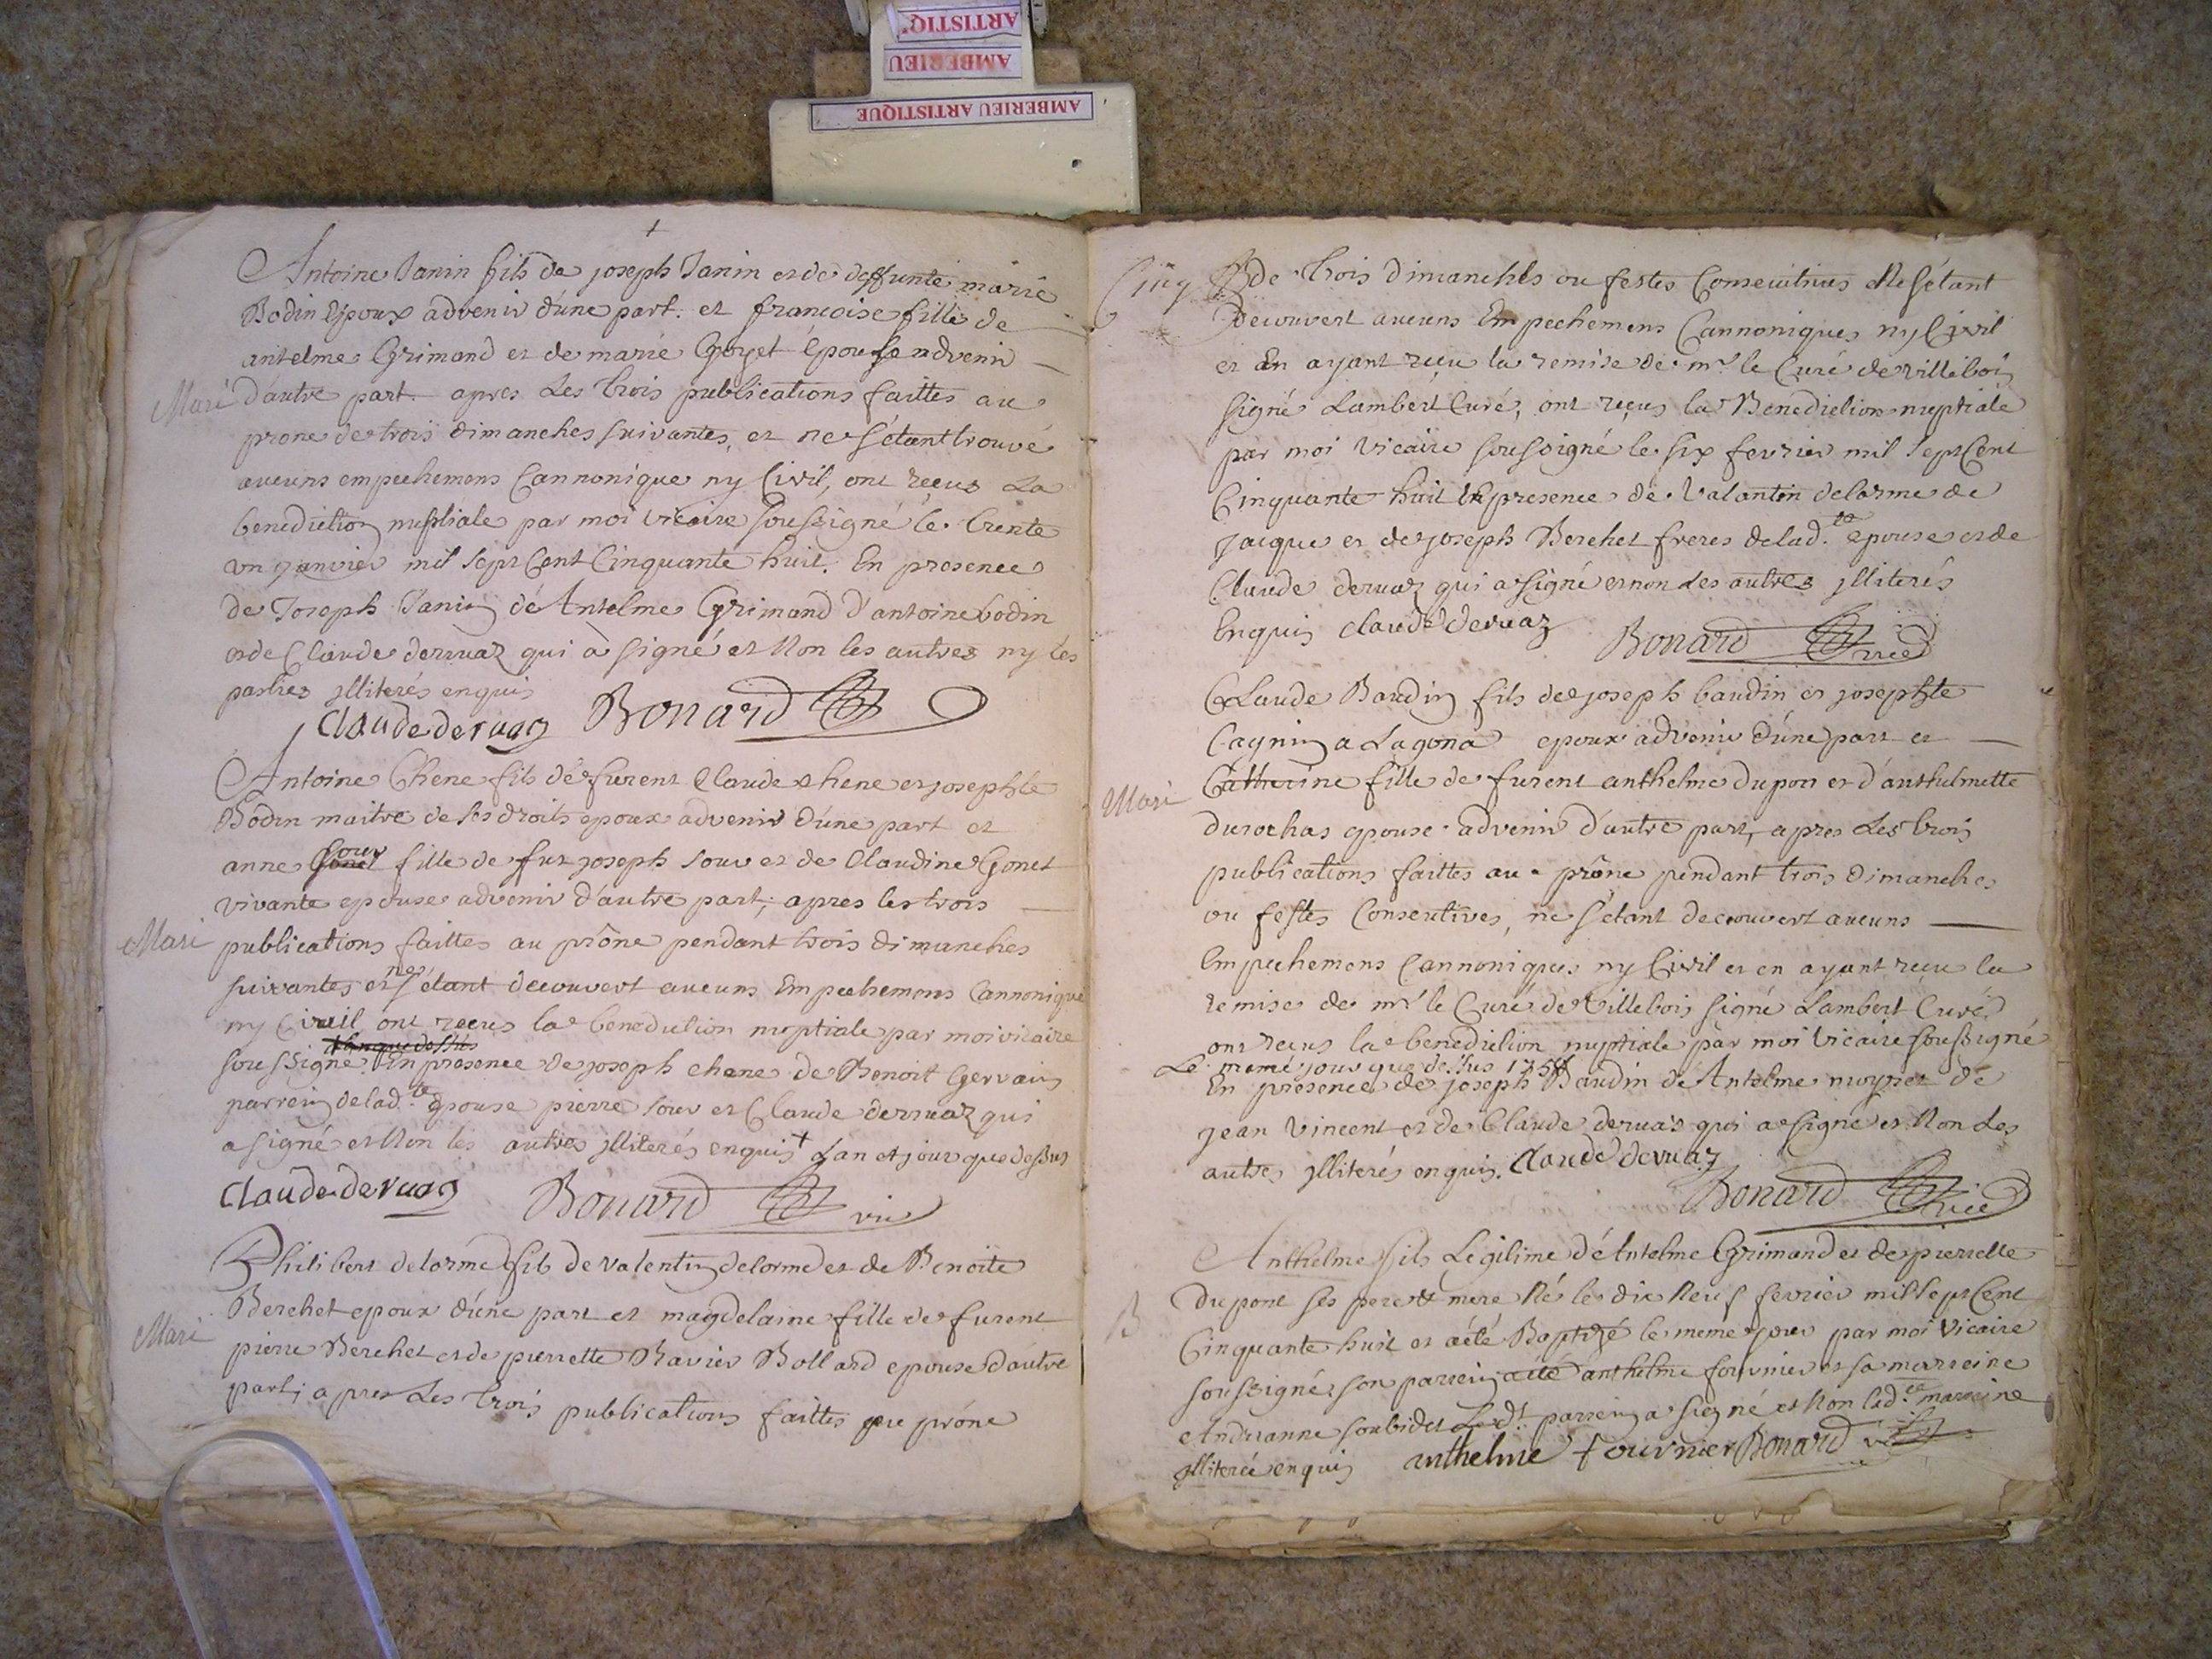 ARTISTIQ
AMBERIEU
AMBERIEU ARTISTIQUE
Antoine Janin fils de joseph Janin et de deffunte marie
Bodin Epoux advenir d'une part. et francoise fille de
antelme Grimand et de marie Goyet épouse advenir
Mari
d'autre part. apres Les trois publications faittes au
prone de trois dimanches suivantes, et ne s'étant trouvé
aucuns empechemens Cannonique ny Civil, ont reçus La
benediction nuptiale par moi vicaire soussigné le trente
un janvier mil sept Cent Cinquante huit. En presence
de Joseph Janin de Antelme Grimand d'antoine bodin
et de Claude dervaz qui à signé et Non les autres ny les
parties illiterés enquis
Claude dervaz Bonard
Antoine Chene fils de furent Claude chene et josephte
Bodin maitre de ses droits epoux advenir d'une part et
anne souv fille de fut joseph souv et de Claudine Gonet
vivante epouse advenir d'autre part; apres les trois
Mari
publications faittes au prône pendant trois dimanches
suivantes et ne s'étant decouvert aucuns Empechemens Cannonique
ny Civil ont reçus la benediction nuptiale par moi vicaire
soussigné. En presence de joseph chene de Benoit Gervais
parrein de lad.te epouse pierre souv et Claude dervaz qui
a signé et Non les autres illiterés enquis + Lan et jour que dessus
Claude dervaz Bonard vic
Philibert delorme fils de valentin delorme et de Benoite
Berchet epoux d'une part et magdelaine fille de furent
Mari
pierre Berchet et de pierrette Ravier Bollard epouse d'autre
part; apres Les trois publications faittes au prône
Cinq
de trois dimanches ou festes Consecutives Ne s'étant
decouvert aucuns Empechemens Cannoniques ny Civil
et En ayant reçu la remise de mr. le Curé de villebois
signé Lambert Curé, ont reçus la Benediction nuptiale
par moi vicaire soussigné le six fevrier mil sept Cent
Cinquante huit En presence de Valantin delorme de
jacque et de joseph Berchet freres de lad.te epouse et de
Claude dervaz qui a signé et non Les autres illiterés
Enquis claude dervaz Bonard vice
Claude Baudin fils de joseph baudin et josephte
Cagnin a Lagona epoux advenir d'une part et
Mari
Catherine fille de furent anthelme dupon et d'anthelmette
durochas epouse advenir d'autre part, apres Les trois
publications faittes au prône pendant trois dimanches
ou festes Consecutives, ne s'étant decouvert aucuns
Empechemens Cannoniques ny Civil et en ayant reçu la
remise de mr le Curé de Villebois signé Lambert Curé
ont reçus la benediction nuptiale par moi vicaire soussigné
Le meme jour que dessus 1758
En presence de joseph Baudin de Antelme de
jean vincent et de Claude dervaz qui a signé et Non Les
autres illiterés enquis. Claude dervaz
Bonard vice
Anthelme fils Legitime d'Antelme Grimand et de pierrette
B
Dupont ses pere et mere Né le dix Neuf fevrier mil sept Cent
Cinquante huit et a été Baptizé le meme jour par moi vicaire
soussigné, son parrein a été anthelme fournier et sa marreine
Andrianne soubidet Led.t parrein a signé et Non lad.te marreine
illiterée enquis anthelme fournier Bonard vic